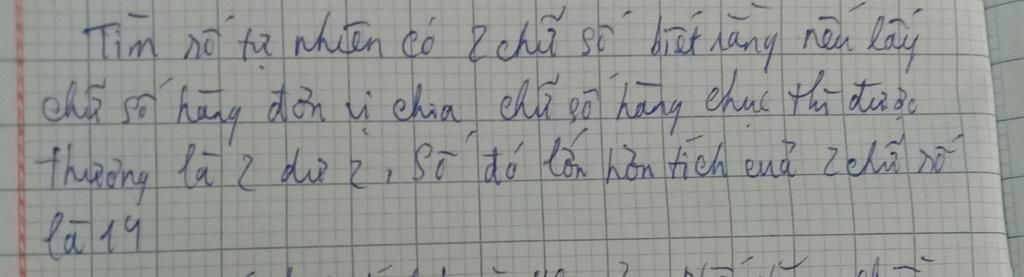 Tìm số tự nhiên có 2 chữ số biết rằng nếu lấy
chữ số hàng đơn vị chia chữ số hàng chục thì được
thương là 2 dư 2, số đó lớn hơn tích của 2 chữ số
là 14